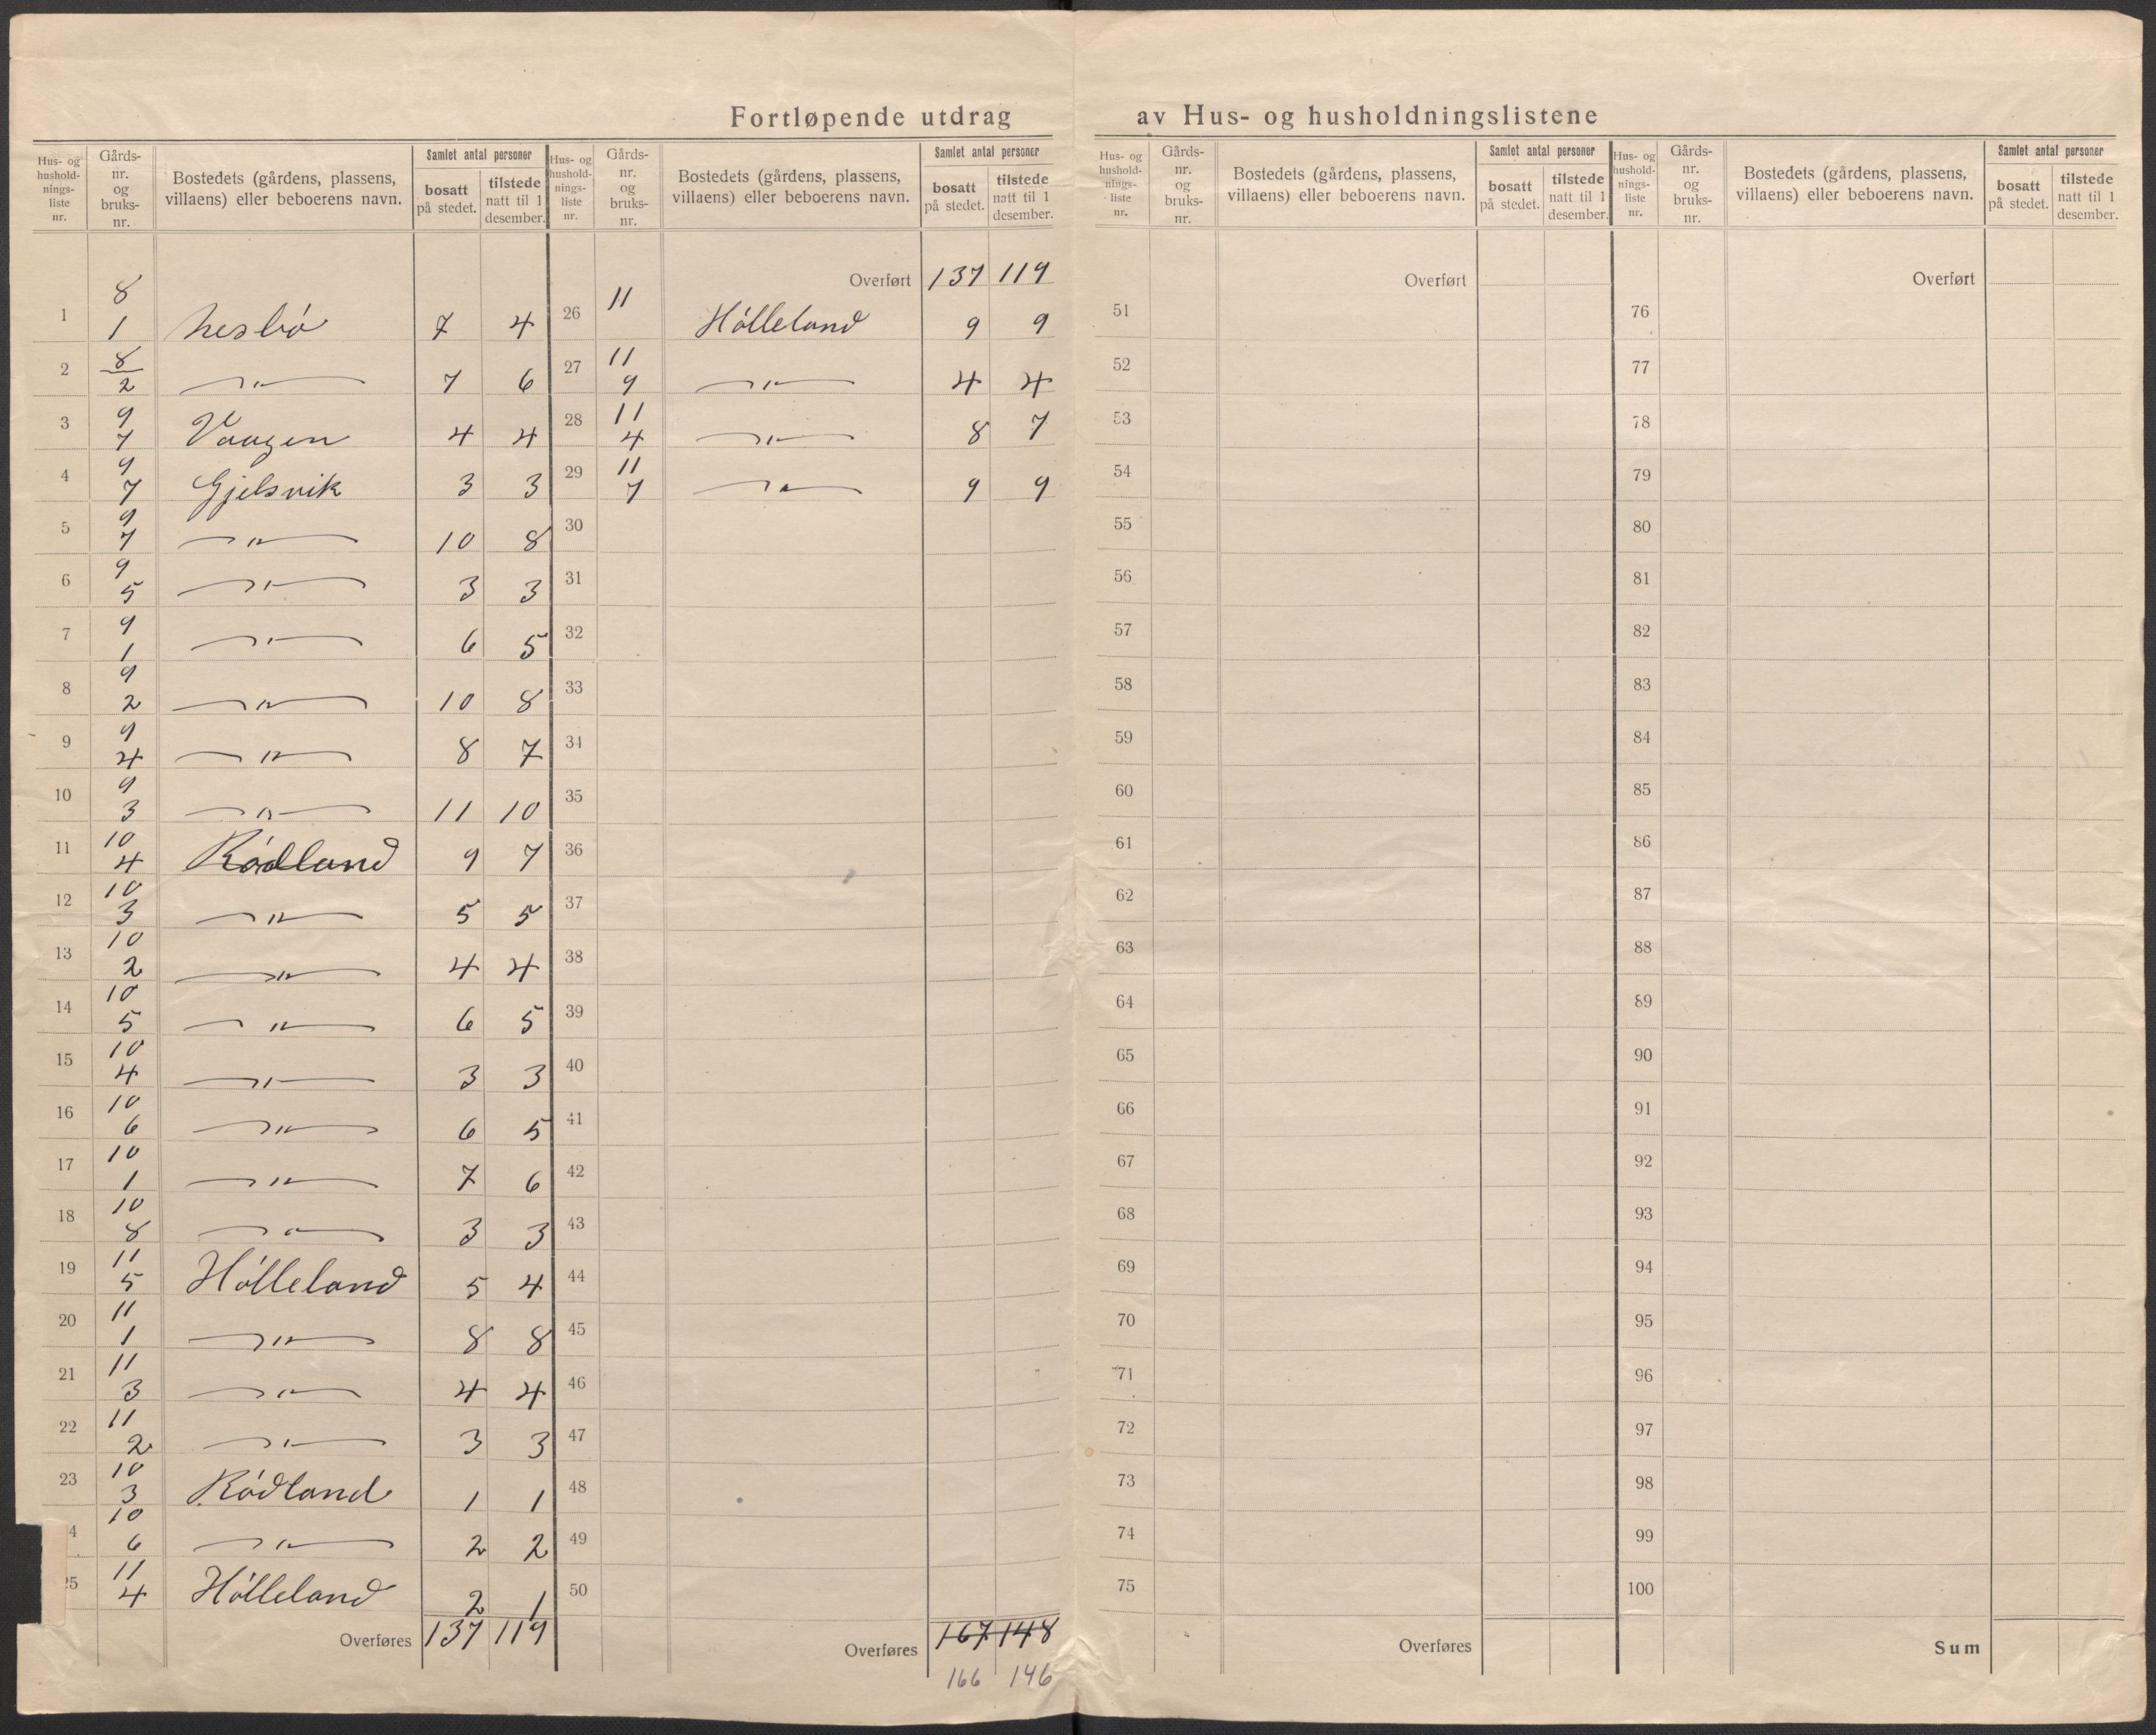 Fortløpende utdrag av Hus- og husholdningslistene
Hus- og hushold-nings-liste nr. Gårds-nr. og bruks-nr. Bostedets (gårdens, plassens, villaens) eller beboerens navn. Samlet antal personer bosatt på stedet. tilstede natt til 1 desember.
1 8 1 Nesbö 7 4
2 8 2 —"— 7 6
3 9 7 Vaagen 4 4
4 9 7 Gjelsvik 3 3
5 9 7 —"— 10 8
6 9 5 —"— 3 3
7 9 1 —"— 6 5
8 9 2 —"— 10 8
9 9 4 —"— 8 7
10 9 3 —"— 11 10
11 10 4 Rödland 9 7
12 10 3 —"— 5 5
13 10 2 —"— 4 4
14 10 5 —"— 6 5
15 10 4 —"— 3 3
16 10 6 —"— 6 5
17 10 1 —"— 7 6
18 10 8 —"— 3 3
19 11 5 Hólleland 5 4
20 11 1 —"— 8 8
21 11 3 —"— 4 4
22 11 2 —"— 3 3
23 10 3 Ródland 1 1
4 10 6 —"— 2 2
25 11 4 Hólleland 2 1
Overføres 137 119
Hus- og hushold-nings-liste nr. Gårds-nr. og bruks-nr. Bostedets (gårdens, plassens, villaens) eller beboerens navn. Samlet antal personer bosatt på stedet. tilstede natt til 1 desember.
Overført 137 119
26 11 Hólleland 9 9
27 11 9 —"— 4 4
28 11 4 —"— 8 7
29 11 7 —"— 9 9
30
31
32
33
34
35
36
37
38
39
40
41
42
43
44
45
46
47
48
49
50
Overføres 167 148
166 146
Hus- og hushold-nings-liste nr. Gårds-nr. og bruks-nr. Bostedets (gårdens, plassens, villaens) eller beboerens navn. Samlet antal personer bosatt på stedet. tilstede natt til 1 desember.
Overført
51
52
53
54
55
56
57
58
59
60
61
62
63
64
65
66
67
68
69
70
71
72
73
74
75
Overføres
Hus- og hushold-nings-liste nr. Gårds-nr. og bruks-nr. Bostedets (gårdens, plassens, villaens) eller beboerens navn. Samlet antal personer bosatt på stedet. tilstede natt til 1 desember.
Overført
76
77
78
79
80
81
82
83
84
85
86
87
88
89
90
91
92
93
94
95
96
97
98
99
100
Sum